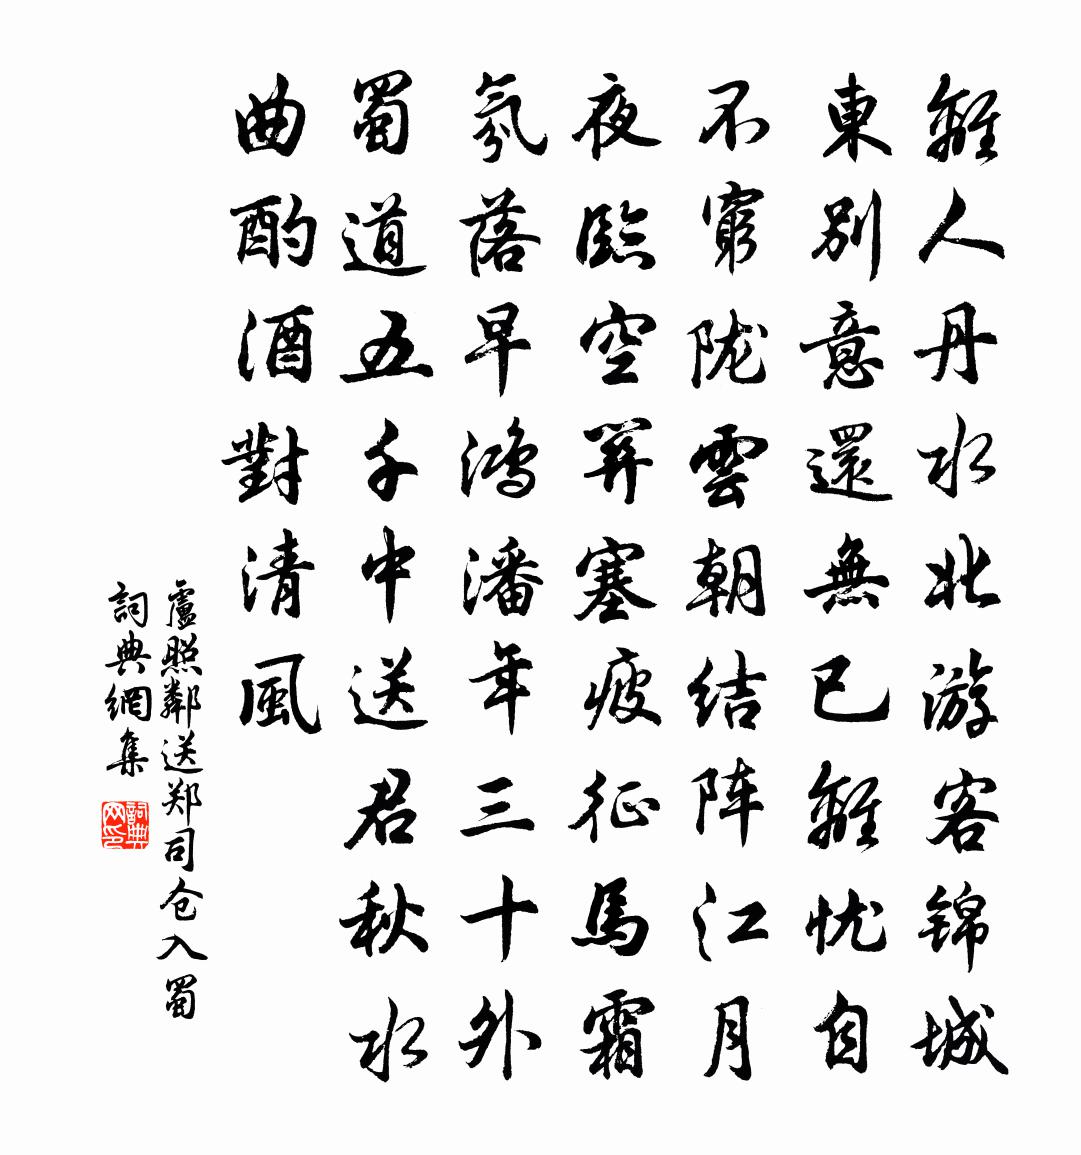 離人丹水北游客锦城
東别意還無已離忧自
不窮陇雲朝结阵江月
夜臨空關塞疲征馬霜
氛落早鸿潘年三十外
蜀道五千中送君秋水
曲酌酒對清風
盧照鄰送郑司仓入蜀
詞典網集
詞典网印